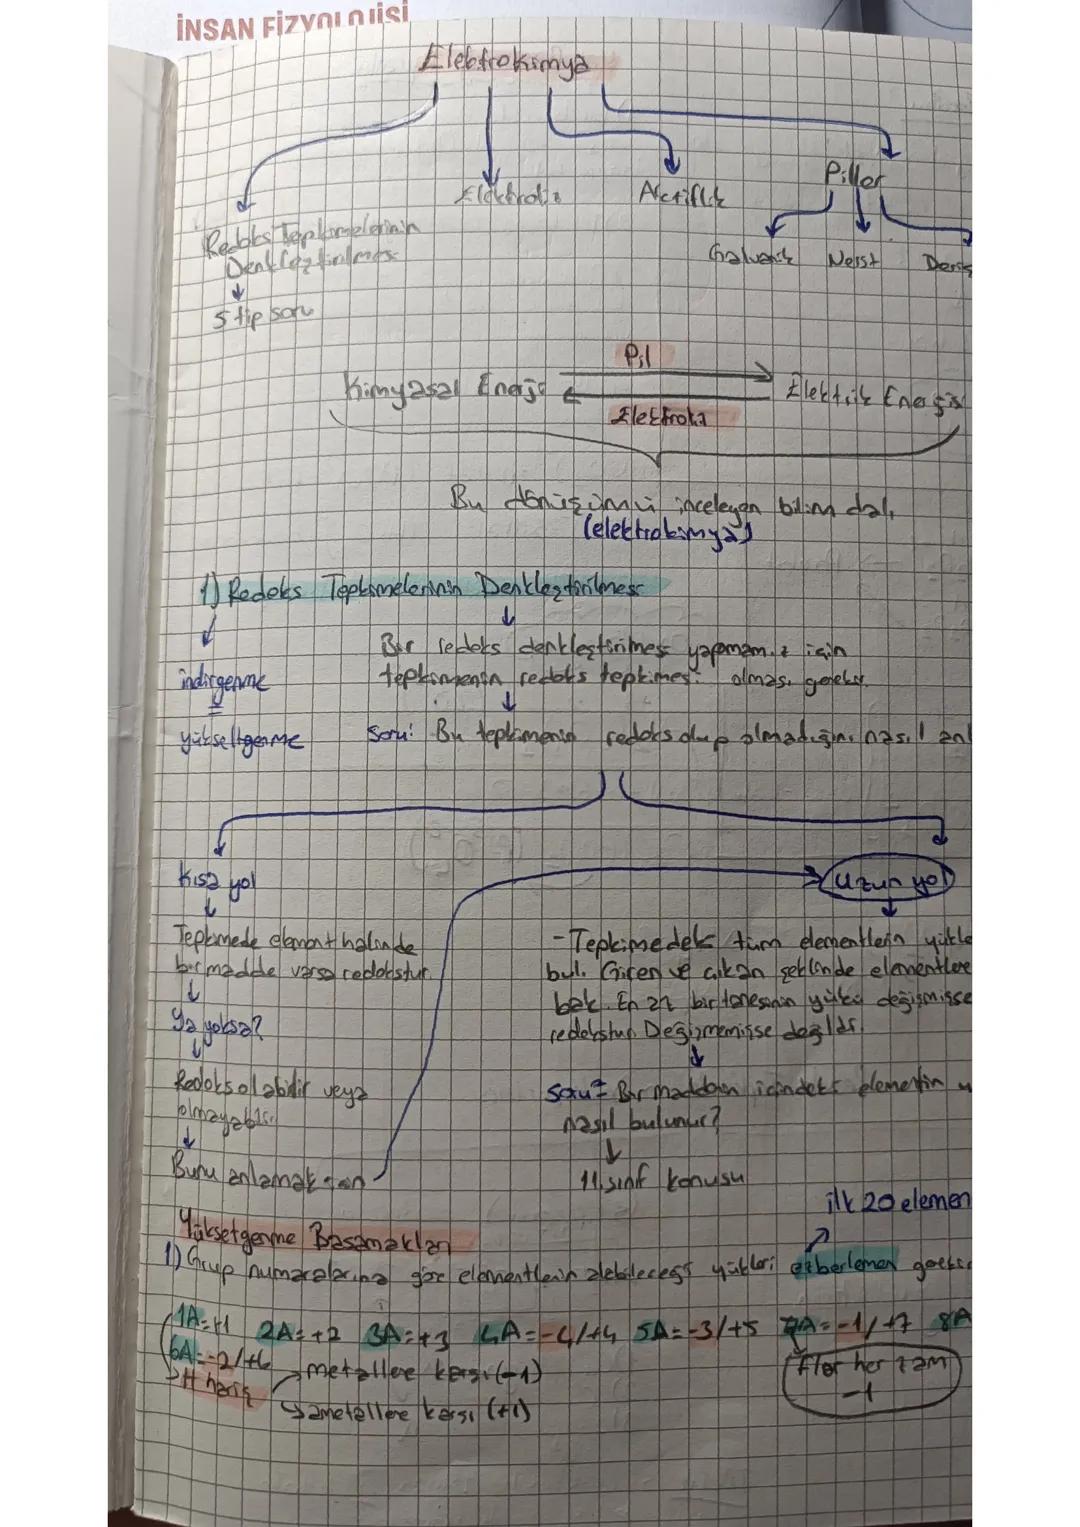 İNSAN FİZYOLOJİSİ
Elektrokimya
Piller
Elektroliz
Aktiflik
Redoks Tepkimelerinin
Denkleştirilmesi
Galvanik
Nerst
Deriş
5 tip soru
Pil
Kimyasal Enerji
Elektrik Enerjisi
Elektroliz
Bu dönüşümü inceleyen bilim dalı
(elektrokimya)
1) Redoks Tepkimelerinin Denkleştirilmesi
Bir redoks denkleştirilmesi yapmamız için
indirgenme
tepkimenin redoks tepkimesi olması gerekir.
yükseltgenme
Soru: Bu tepkimenin redoks olup olmadığını nasıl anl
Kısa yol
Uzun yol
Tepkimede element halinde
bir madde varsa redokstur.
Ya yoksa?
Redoks olabilir veya
olmayabilir.
Bunu anlamak için
- Tepkimedeki tüm elementlerin yükle
bul. Giren ve çıkan şeklinde elementlere
bak. En az bir tanesinin yükü değişmişse
redokstur. Değişmemişse değildir.
soru: Bir maddenin içindeki elementin y
nasıl bulunur?
11. sınıf konusu
ilk 20 elemen
Yükseltgenme Basamakları
1) Grup numaralarına göre elementlerin alabileceği yükleri ezberlemen gerekir
1A=+1 2A=+2 3A=+3 4A=-4/+4 5A=-3/+5 7A=-1/+7 8A
6A=-2/+6
H hariç
metallere karşı (-1)
ametallere karşı (+1)
Flor her zam
-1